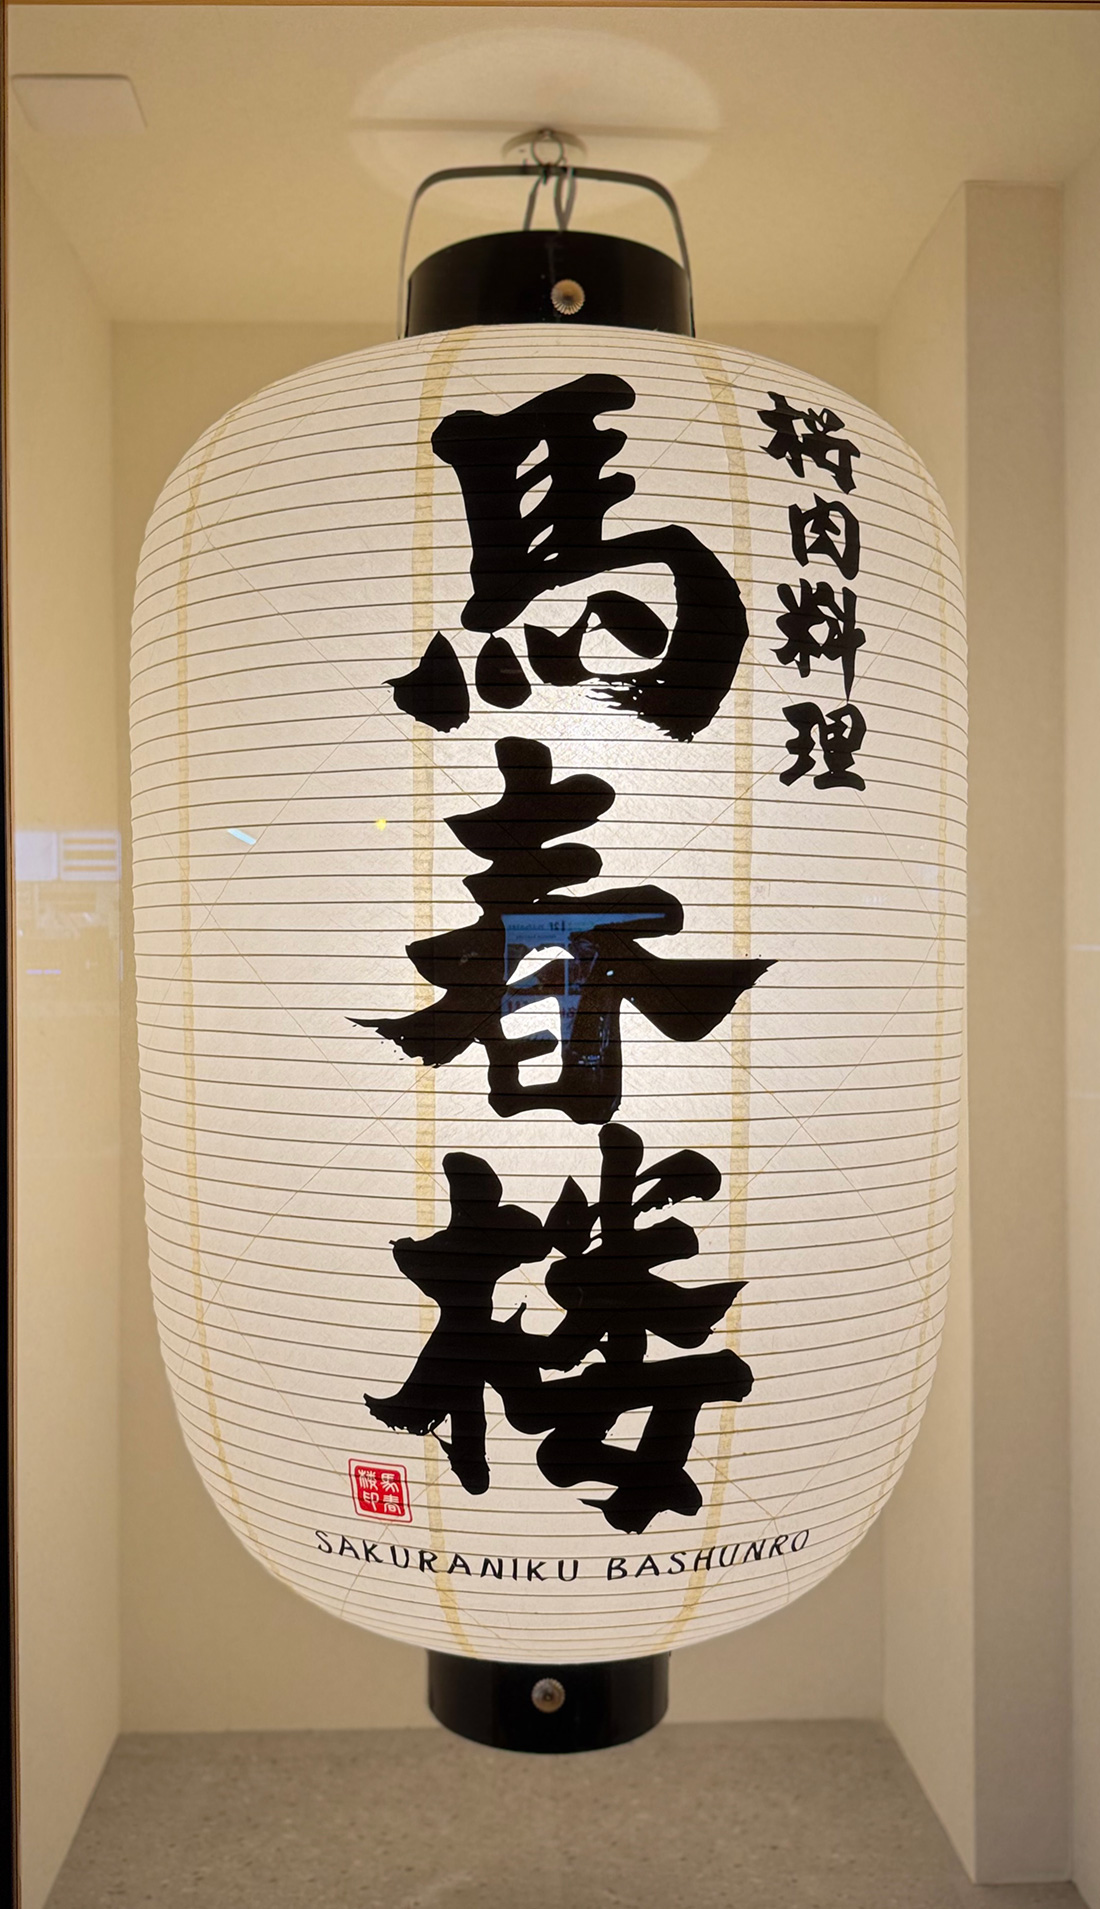 桜肉料理
馬春楼
馬春
楼印
SAKURANIKU BASHUNRO